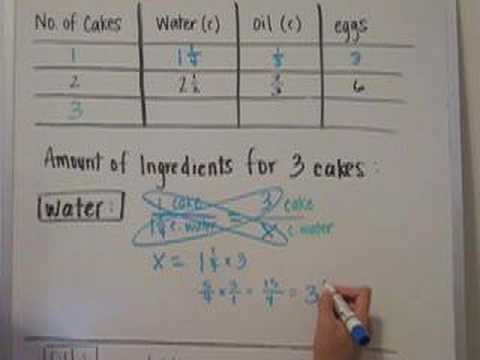 No. of Cakes Water (c) Oil (c) eggs
1 1 1/4 1/3
2 2 1/2 2/3 6
3
Amount of Ingredients for 3 cakes:
Water: 1 cake / 1 1/4 c. water = 3 cake / x c. water
x = 1 1/4 x 3
5/4 x 3/1 = 15/4 = 3